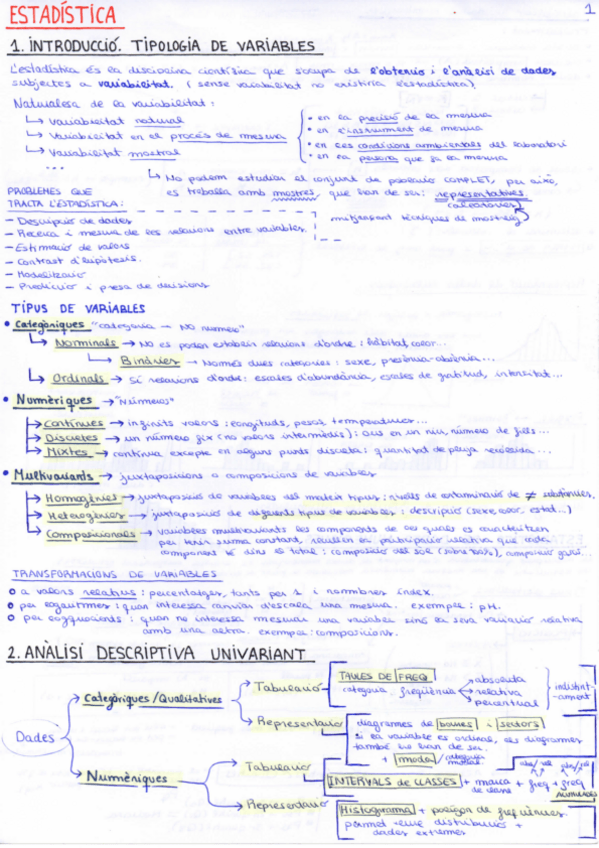 ESTADÍSTICA
1
1. INTRODUCCIÓ. TIPOLOGIA DE VARIABLES
L'estadística és la disciplina científica que s'ocupa de l'obtenció i l'anàlisi de dades
subjectes a variabilitat. (sense variabilitat no existiria l'estadística).
Naturalesa de la variabilitat:
↳ Variabilitat natural
↳ Variabilitat en el procés de mesura
↳ Variabilitat mostral
...
• en la precisió de la mesura
• en l'instrument de mesura
• en les condicions ambientals del laboratori
• en la persona que fa la mesura
↳ No podem estudiar el conjunt de població COMPLET, per això,
es treballa amb mostres, que han de ser: representatives
mitjançant tècniques de mostreig
PROBLEMES QUE
TRACTA L'ESTADÍSTICA:
- Descripció de dades
- Recerca i mesura de les relacions entre variables.
- Estimació de valors
- Contrast d'hipòtesis.
- Modelització
- Predicció i presa de decisions
TIPUS DE VARIABLES
• Categòriques "categoria → NO número"
↳ Nominals → No es poden establir relacions d'ordre: hàbitat, color...
↳ Binàries → Només dues categories: sexe, presència-absència...
↳ Ordinals → Sí relacions d'ordre: escales d'abundància, escales de gratitud, intensitat...
• Numèriques → "Números"
→ Contínues → infinits valors: longituds, pesos, temperatures...
→ Discretes → un número fix (no valors intermedis): ous en un niu, número de fills...
→ Mixtes → contínua excepte en alguns punts discreta: quantitat de pluja recollida...
• Multivariants → juxtaposicions o composicions de variables
→ Homogènies → juxtaposició de variables del mateix tipus: nivells de contaminació de ≠ substàncies.
→ Heterogènies → juxtaposició de diferents tipus de variables: descripció (sexe, color, estat...)
→ Composicionals → variables multivariants les components de les quals es caracteritzen
per tenir suma constant, recullen la participació relativa que cada
component té dins el total: composició del sòl
TRANSFORMACIONS DE VARIABLES
o a valors relatius: percentatges, tants per 1 i nombres índex.
o per logaritmes: quan interessa canviar d'escala una mesura. exemple: pH.
o per logquocients: quan no interessa mesurar una variable sinó la seva variació relativa
amb una altra. exemple: composicions.
2. ANÀLISI DESCRIPTIVA UNIVARIANT
Dades
Categòriques/Qualitatives
Tabulació
TAULES DE FREQ.
categoria freqüència
absoluta
relativa
percentual
indistint-
ament
Representació
diagrames de barres i sectors
si la variable és ordinal, els diagrames
també ho han de ser.
+ moda
Numèriques
Tabulació
INTERVALS de CLASSES + marca + freq + freq
de classe
ACUMULADES
Representació
Histograma + polígon de freqüències.
distribució +
dades extremes